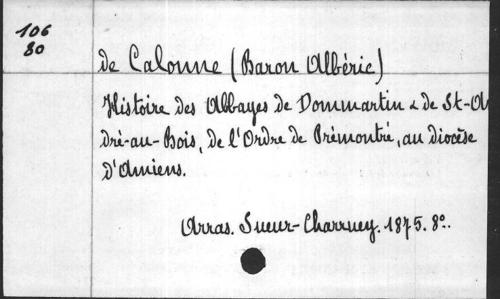 106
80
de Calonne (Baron Albéric)
Histoire des Abbayes de Dommartin & de St-An
dré-au-Bois, de l'Ordre de Prémontré, au diocèse
d'Amiens.
Arras. Sueur-Charruey. 1875. 8º.